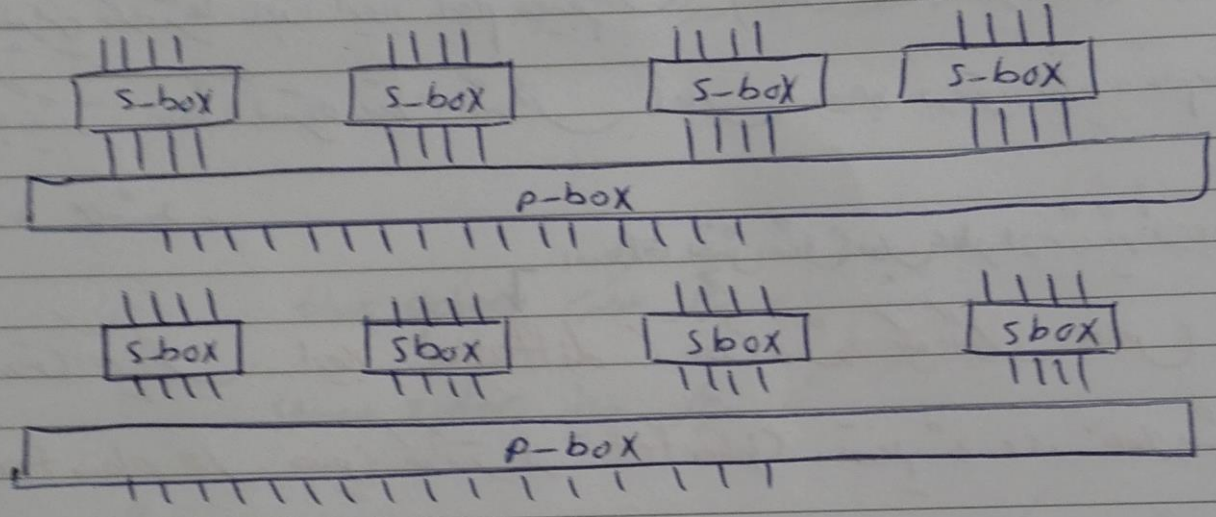 S-box S-box S-box S-box
P-box
S-box Sbox Sbox Sbox
P-box